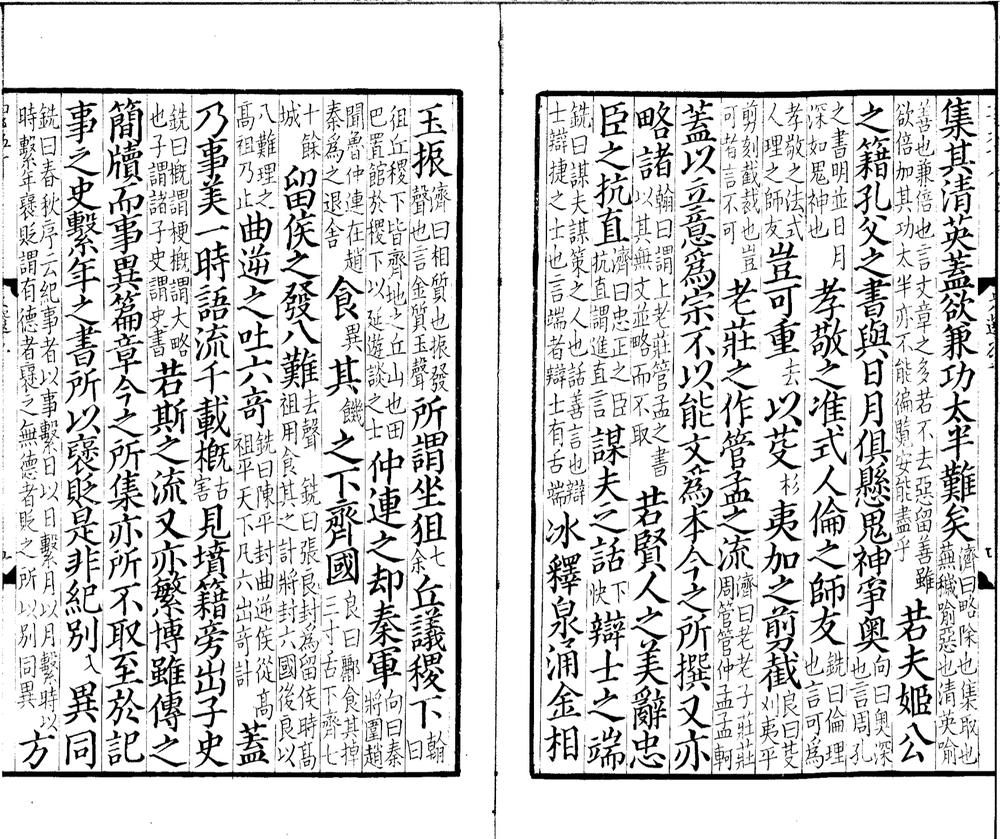 集其清英蓋欲兼功太半難矣濟曰略除也集取也蕪穢喻惡也清英喻
善也兼倍也言文章之多若不去惡留善雖欲倍加其功太半亦不能徧覽安能盡乎若夫姬公
之籍孔父之書與日月俱懸鬼神爭奧向曰奧深也言周孔
之書明並日月深如鬼神也孝敬之准式人倫之師友銑曰倫理也言可為
孝敬之法式人理之師友豈可重去以芟杉夷加之剪截良曰芟刈夷平
剪刻截裁也豈可者言不可老莊之作管孟之流濟曰老老子莊莊周管管仲孟孟軻
蓋以立意爲宗不以能文爲本今之所撰又亦
略諸翰曰謂上老莊管孟之書以其無文並略而不取若賢人之美辭忠
臣之抗直濟曰忠正之臣抗直謂進直言謀夫之話下快辯士之端
銑曰謀夫謀策之人也話善言也辯士辯捷之士也言端者辯士有舌端冰釋泉涌金相
玉振濟曰相質也振發聲也言金質玉聲所謂坐狙七余丘議稷下翰曰
狙丘稷下皆齊地之丘山也田巴置館於稷下以延遊談之士仲連之却秦軍向曰秦將圍趙
聞魯仲連在趙秦為之退舍食異其饑之下齊國良曰酈食其掉三寸舌下齊七
十餘城留侯之發八難去聲銑曰張良封為留侯時高祖用食其之計將封六國後良以
八難理之高祖乃止曲逆之吐六竒銑曰陳平封曲逆侯從高祖平天下凡六出奇計蓋
乃事美一時語流千載槪古害見墳籍旁出子史
銑曰槪謂梗槪謂大略也子謂諸子史謂史書若斯之流又亦繁博雖傳之
簡牘而事異篇章今之所集亦所不取至於記
事之史繫年之書所以襃貶是非紀別入異同
銑曰春秋序云紀事者以事繫日以日繫月以月繫時以時繫年襃貶謂有德者襃之無德者貶之所以別同異方